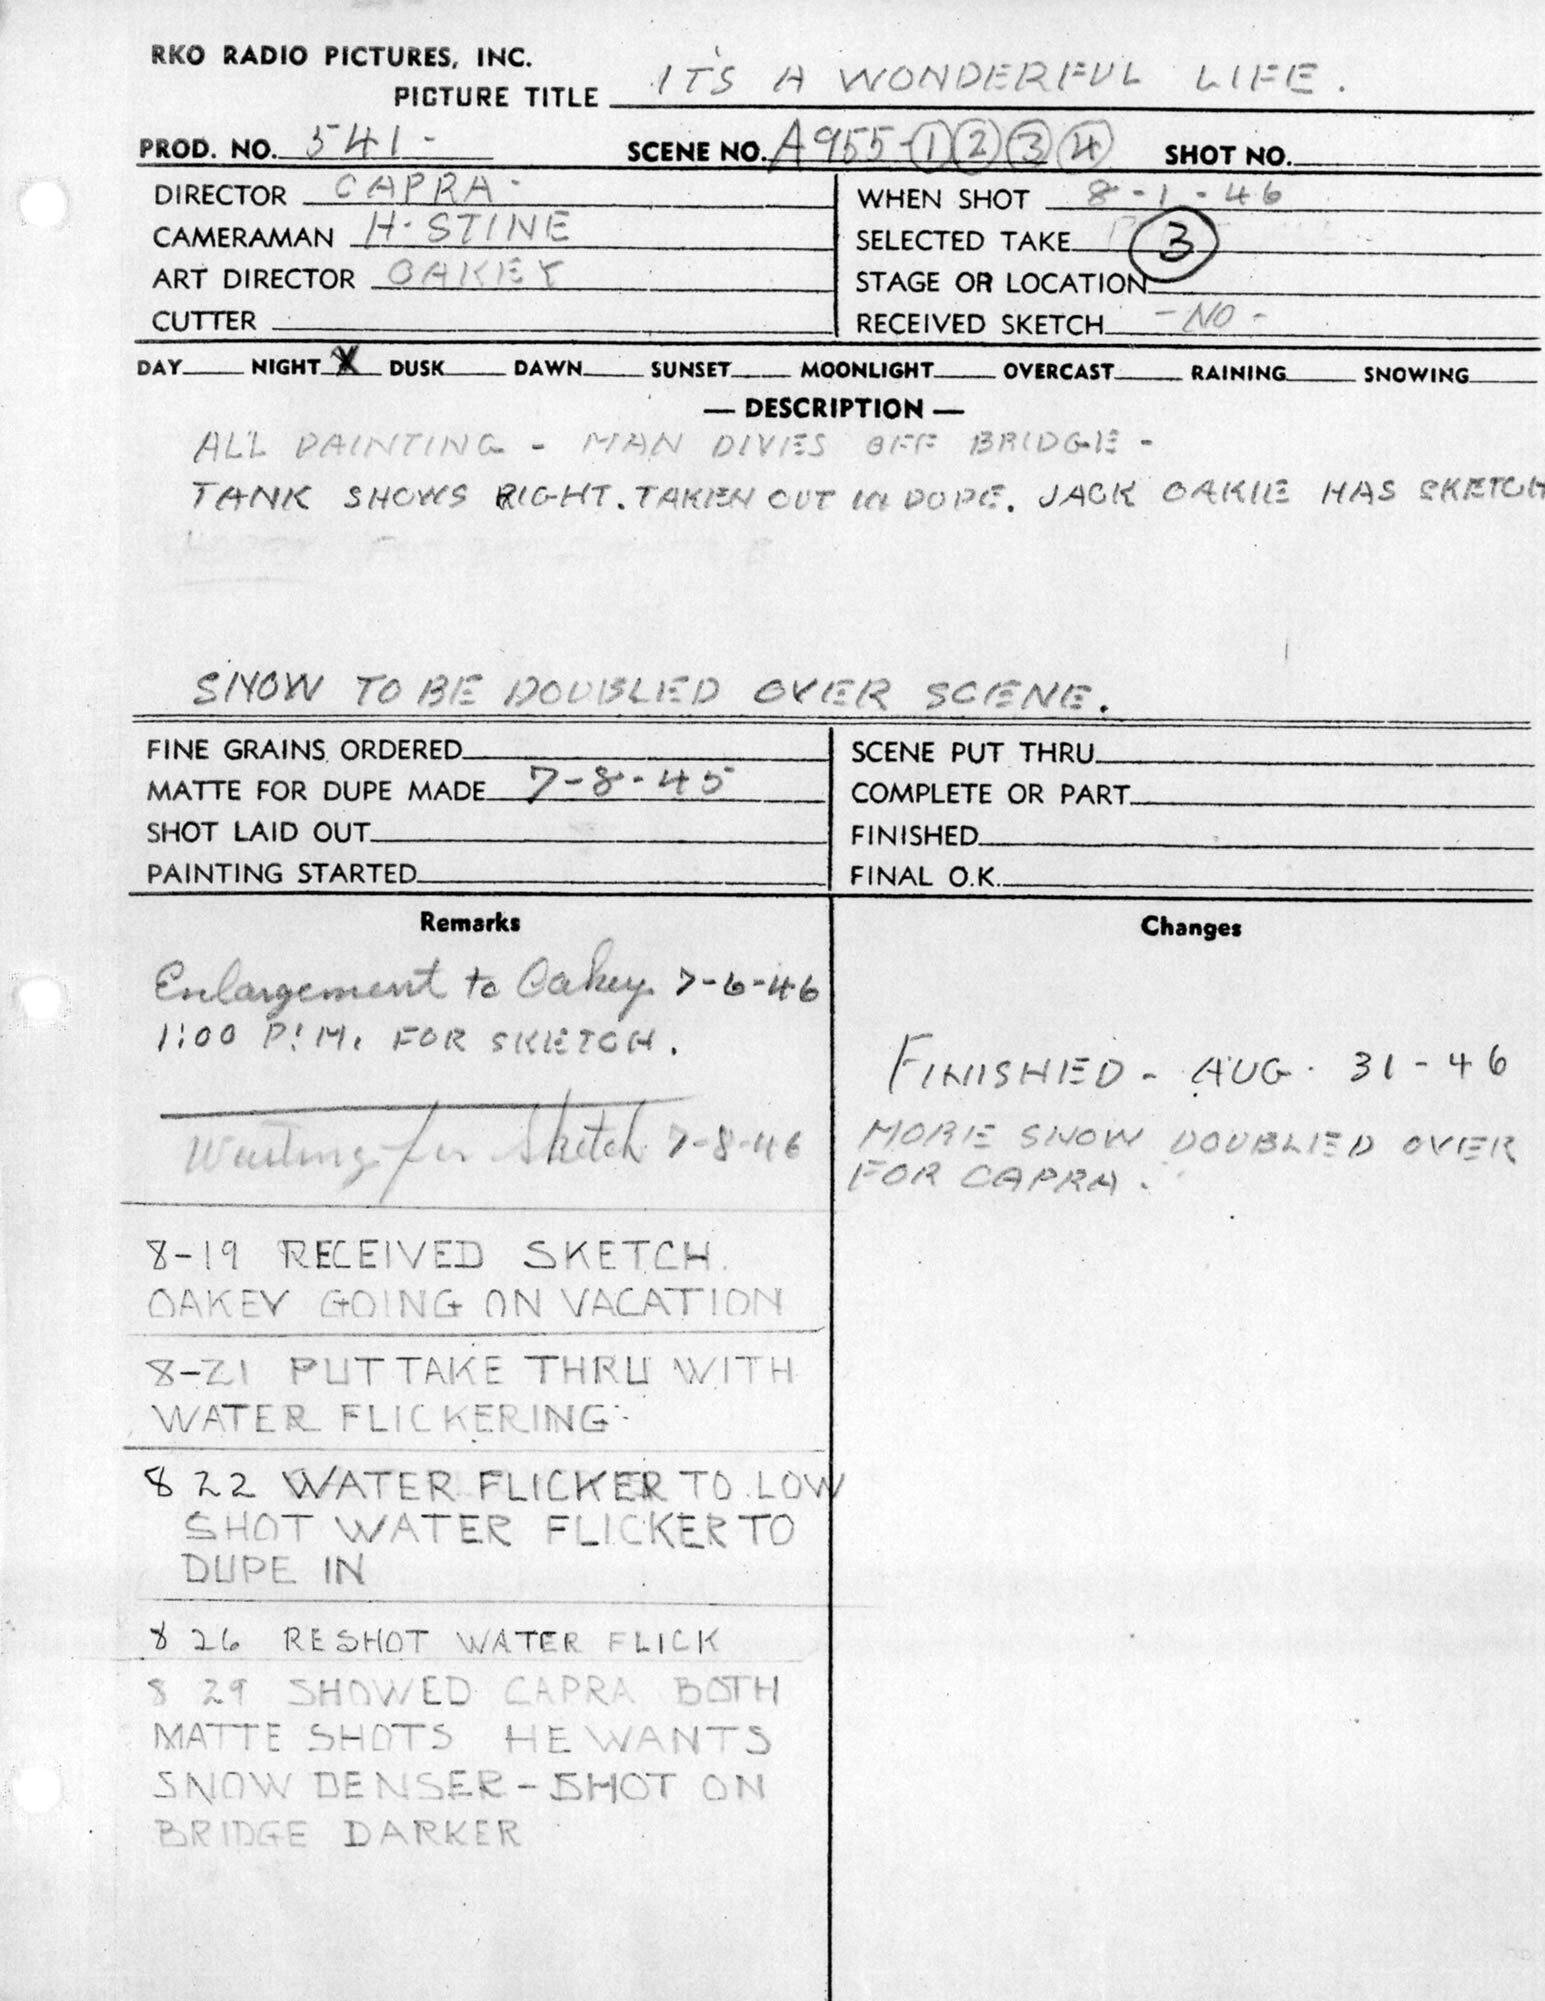 RKO RADIO PICTURES, INC.
PICTURE TITLE IT'S A WONDERFUL LIFE.
PROD. NO. 541- SCENE NO. A955-1 2 3 4 SHOT NO.
DIRECTOR CAPRA- WHEN SHOT 8-1-46
CAMERAMAN H. STINE SELECTED TAKE 3
ART DIRECTOR OAKEY STAGE OR LOCATION
CUTTER RECEIVED SKETCH -NO-
DAY NIGHT X DUSK DAWN SUNSET MOONLIGHT OVERCAST RAINING SNOWING
— DESCRIPTION —
ALL PAINTING - MAN DIVES OFF BRIDGE -
TANK SHOWS RIGHT. TAKEN OUT IN DOPE. JACK OAKIE HAS SKETCH
SNOW TO BE DOUBLED OVER SCENE.
FINE GRAINS ORDERED SCENE PUT THRU
MATTE FOR DUPE MADE 7-8-45 COMPLETE OR PART
SHOT LAID OUT FINISHED
PAINTING STARTED FINAL O.K.
Remarks
Enlargement to Oakey 7-6-46
1:00 P.M. FOR SKETCH.
Waiting for Sketch 7-8-46
8-19 RECEIVED SKETCH.
OAKEY GOING ON VACATION
8-21 PUT TAKE THRU WITH
WATER FLICKERING
8 22 WATER FLICKER TO LOW
SHOT WATER FLICKER TO
DUPE IN
8 26 RESHOT WATER FLICK
8 29 SHOWED CAPRA BOTH
MATTE SHOTS HE WANTS
SNOW DENSER - SHOT ON
BRIDGE DARKER
Changes
FINISHED - AUG. 31-46
MORE SNOW DOUBLED OVER
FOR CAPRA.